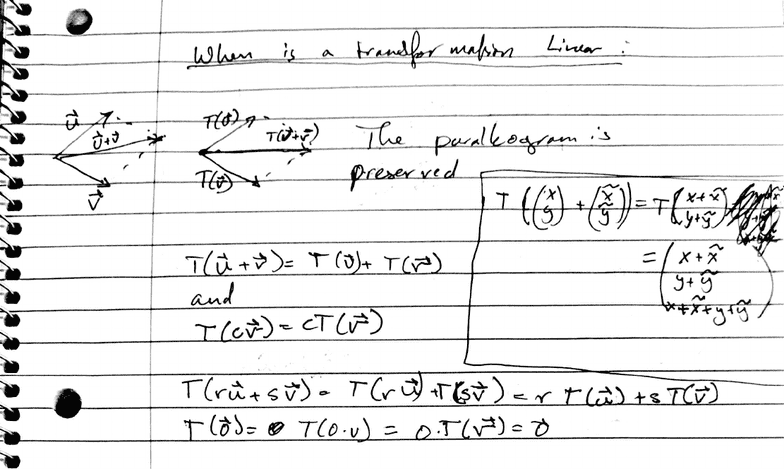 When is a transformation Linear :
u⃗
u⃗+v⃗
v⃗
T(u⃗)
T(u⃗+v⃗)
T(v⃗)
The parallelogram is
preserved
T((x y) + (x̃ ỹ)) = T(x+x̃ y+ỹ)
= (x+x̃
y+ỹ
x+x̃+y+ỹ)
T(u⃗+v⃗) = T(u⃗) + T(v⃗)
and
T(cv⃗) = cT(v⃗)
T(ru⃗+sv⃗) = T(ru⃗)+T(sv⃗) = r T(u⃗) + s T(v⃗)
T(0⃗) = T(0·v) = 0·T(v⃗) = 0⃗